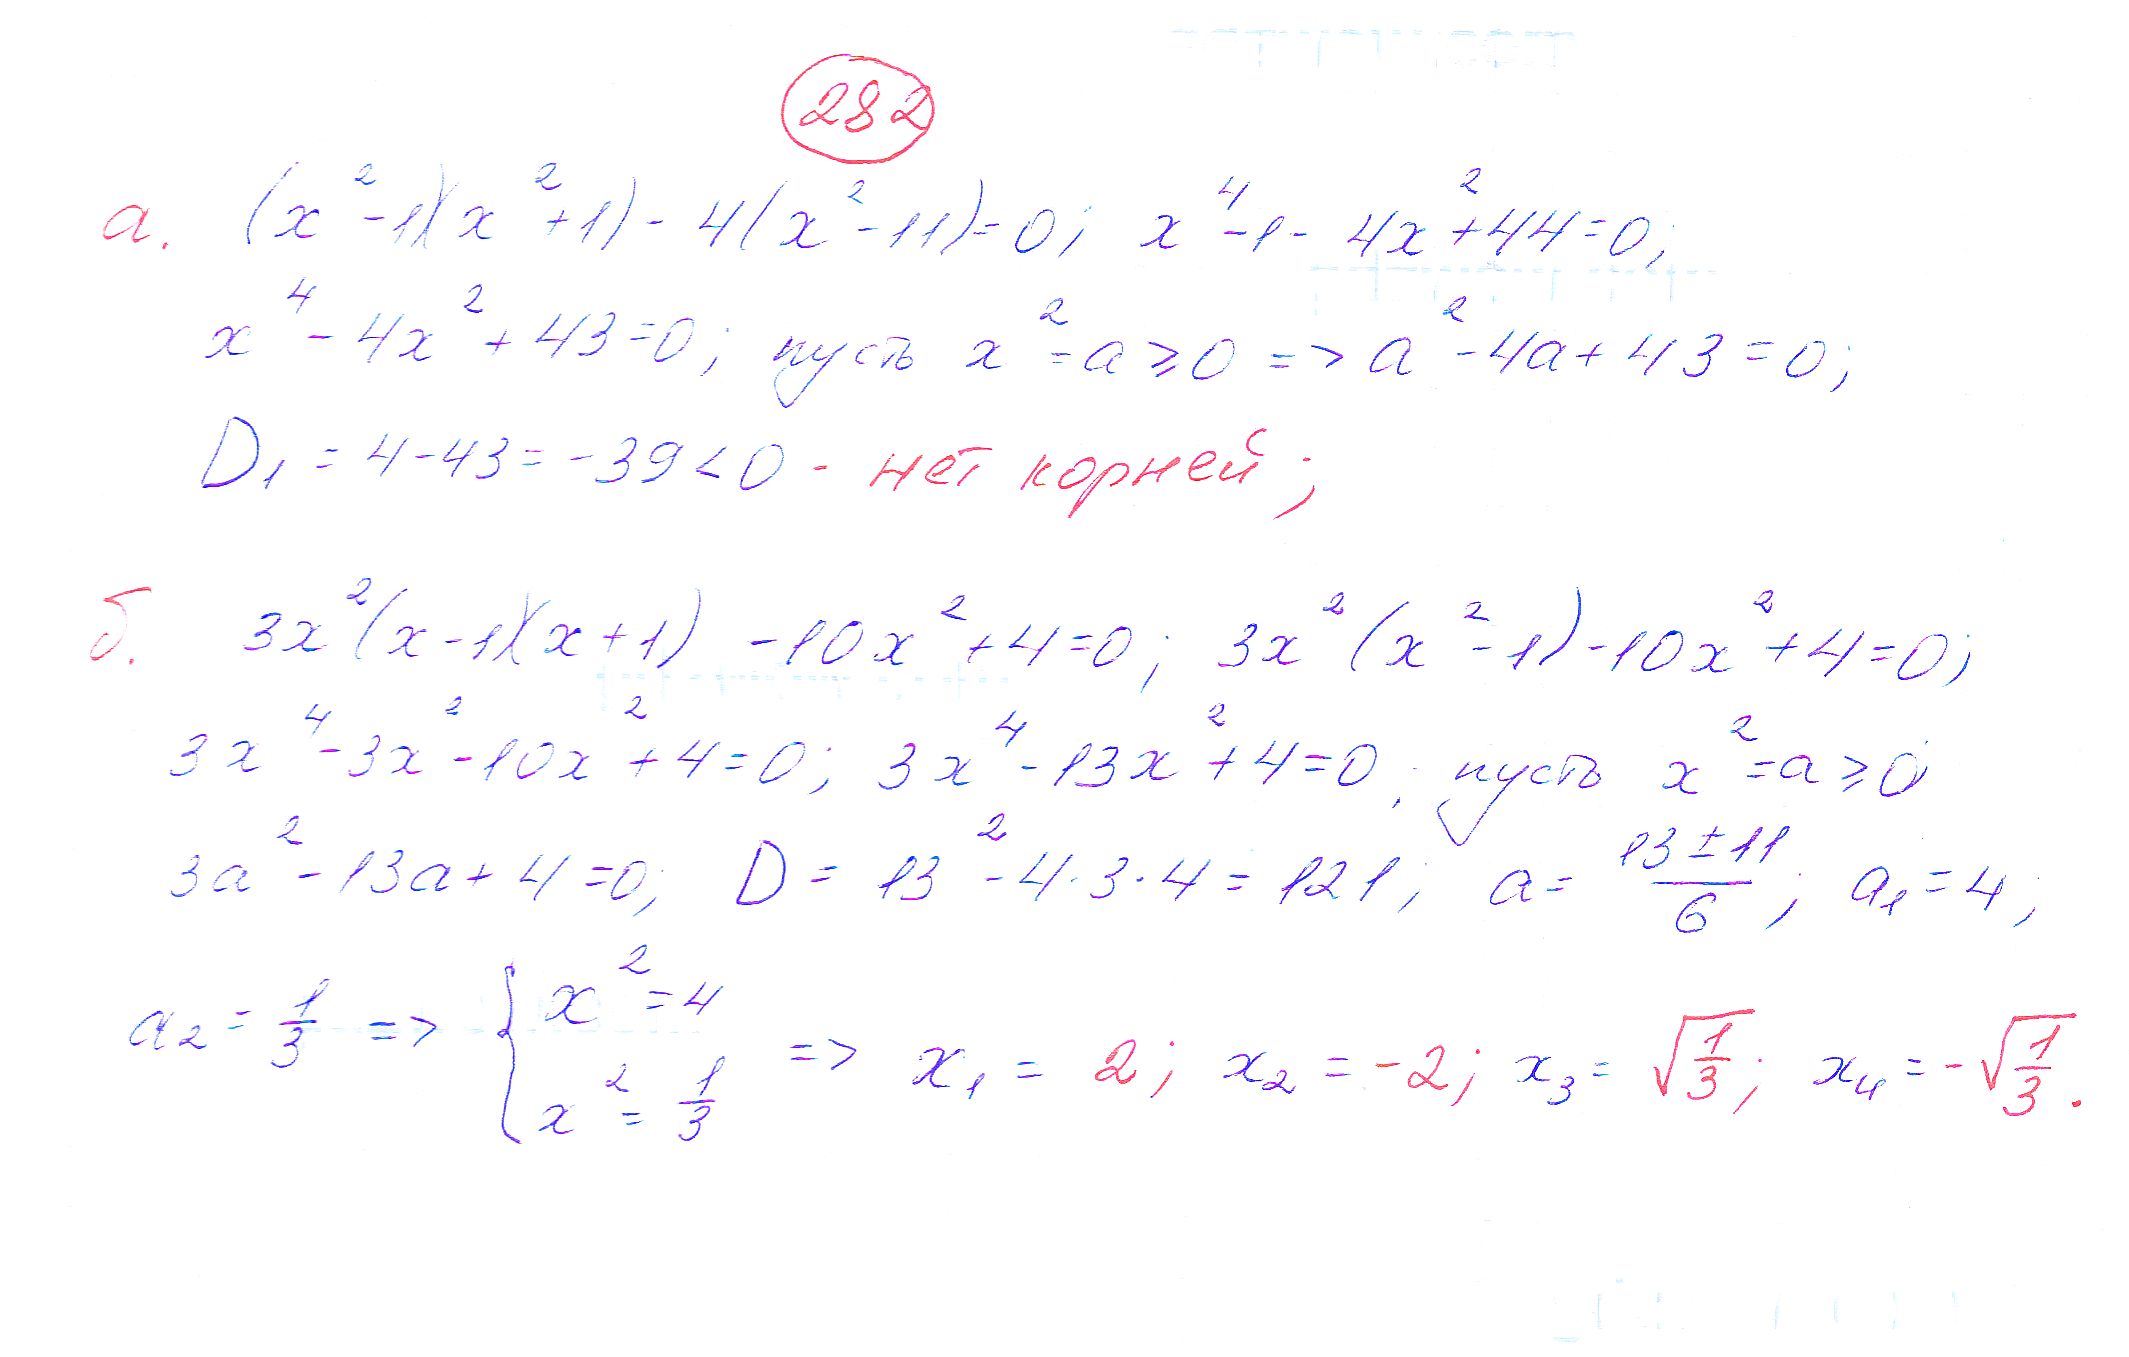 282
а. (x²-1)(x²+1)-4(x²-11)=0; x⁴-1-4x²+44=0;
x⁴-4x²+43=0; пусть x²=a≥0 => a²-4a+43=0;
D₁=4-43=-39<0 - нет корней;
б. 3x²(x-1)(x+1) -10x²+4=0; 3x²(x²-1)-10x²+4=0;
3x⁴-3x²-10x²+4=0; 3x⁴-13x²+4=0; пусть x²=a≥0
3a²-13a+4=0; D=13²-4·3·4=121; a=(13±11)/6; a₁=4;
a₂=1/3 => { x²=4 x²=1/3 => x₁=2; x₂=-2; x₃=√(1/3); x₄=-√(1/3).